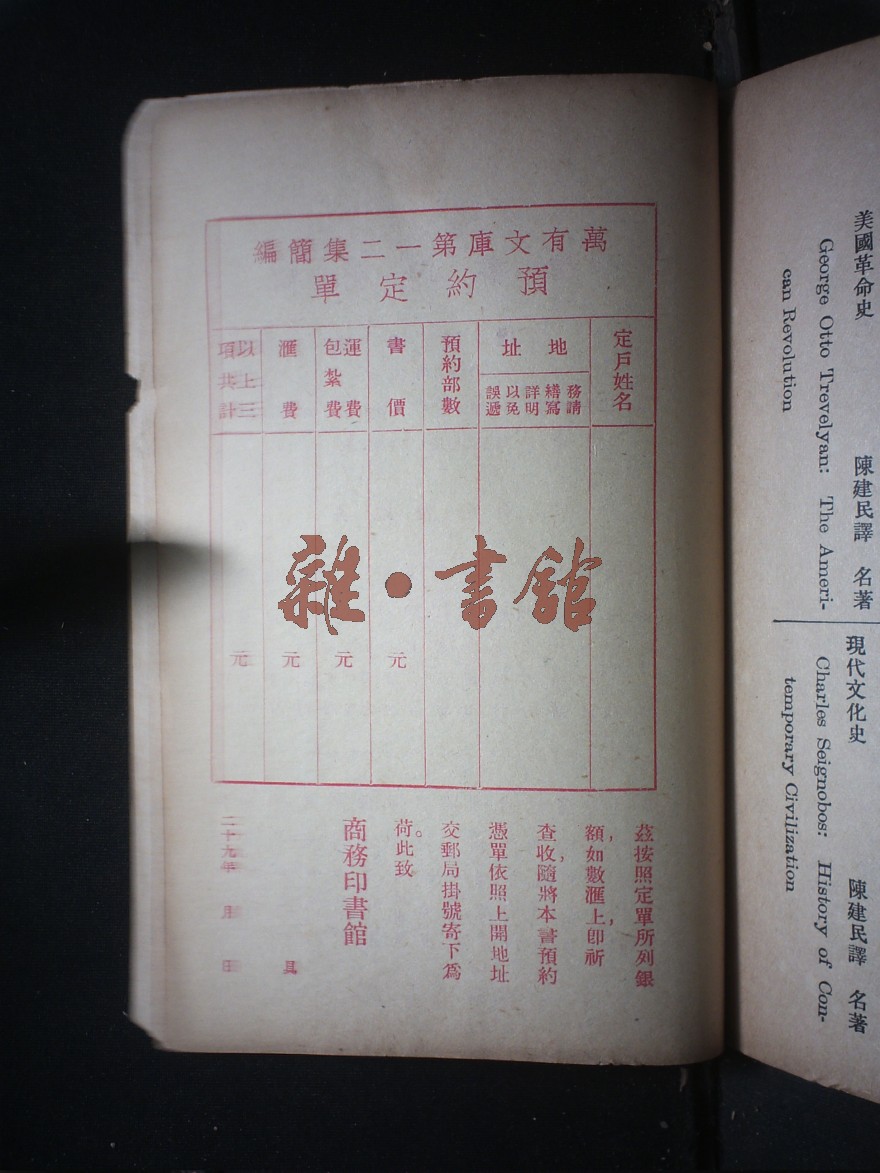 萬有文庫第一二集簡編
預約定單
定戶姓名
地址
務請
繕寫
詳明
以免
誤遞
預約部數
書價
元
運費
包紮費
元
匯費
元
以上三
項共計
元
茲按照定單所列銀
額,如數匯上,即祈
查收,隨將本書預約
憑單依照上開地址
交郵局掛號寄下爲
荷。此致
商務印書館
具
二十九年 月 日
雜·書館
美國革命史 陳建民譯 名著
George Otto Trevelyan: The Ameri-
can Revolution
現代文化史 陳建民譯 名著
Charles Seignobos: History of Con-
temporary Civilization